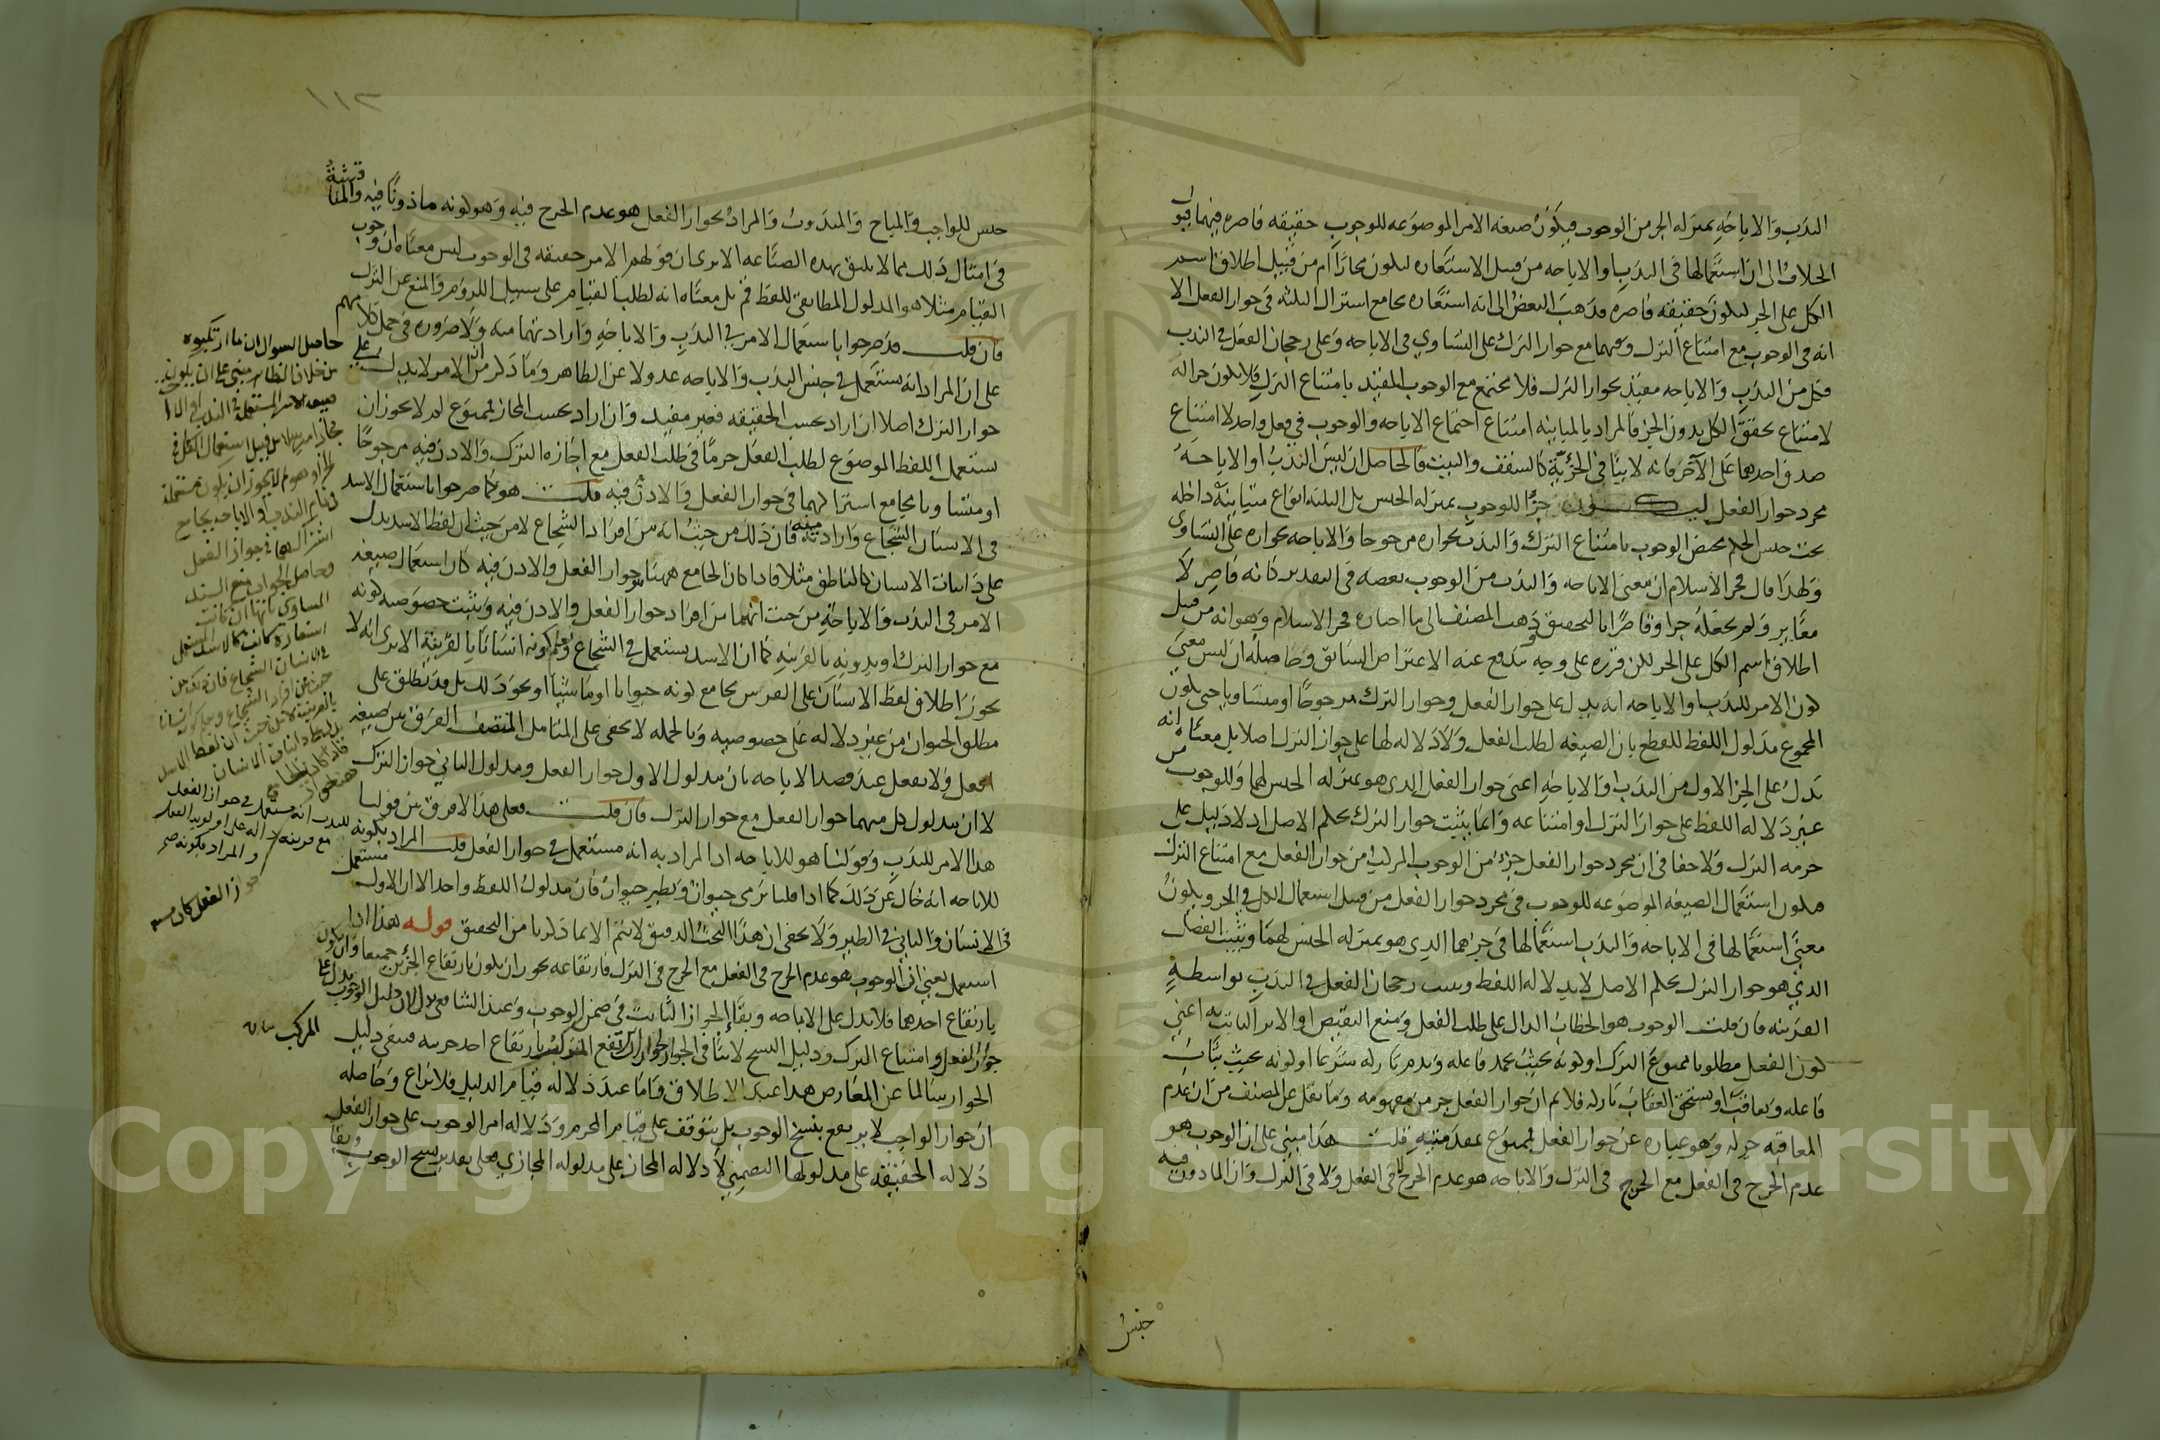 الندب والاباحه بمنزله الجز من الوجوب فيكون صيغه الامر الموضوعه للوجوب حقيقه قاصره فيهما فيول
الخلاف الى ان استعمالها في الندب والاباحه من قبيل الاستعاره ليكون مجازا ام من قبيل اطلاق اسم
الكل على الجز ليكون حقيقه قاصره فذهب البعض الى انه استعاره بجامع اشتراك الثلثه في جواز الفعل الا
انه في الوجوب مع امتناع الترك وفيهما مع جواز الترك على التساوي في الاباحه وعلى رجحان الفعل في الندب
فكل من الندب والاباحه مقيد بجواز الترك فلا يجتمع مع الوجوب المقيد بامتناع الترك فلا يكون جزا له
لامتناع تحقق الكل بدون الجز فالمراد بالمباينه امتناع اجتماع الاباحه والوجوب في فعل واحد لا امتناع
صدق احدهما على الآخر فانه لا ينافي الجزئية كالسقف والبيت فالحاصل ان ليس الندب او الاباحه
مجرد جواز الفعل ليكون جزءا للوجوب بمنزله الجنس بل الثلثه انواع متباينة داخله
تحت جنس الحكم يختص الوجوب بامتناع الترك والندب بجوازه مرجوحا والاباحه بجوازه على التساوي
ولهذا قال فخر الاسلام ان معنى الاباحه والندب من الوجوب بعضه في التقدير كانه قاصر لا
مغاير ولم يجعله جزا وقاصرا بالتحقيق وذهب المصنف الى ما اختاره فخر الاسلام وهو انه من قبيل
اطلاق اسم الكل على الجز لكن قرره على وجه يندفع عنه الاعتراض السابق وحاصله ان ليس معنى
كون الامر للندب والاباحه انه يدل على جواز الفعل وجواز الترك مرجوحا او متساويا حتى يكون
المجموع مدلول اللفظ للقطع بان الصيغه لطلب الفعل ولا دلاله لها على جواز الترك اصلا بل معناه انه
تدل على الجز الاول من الندب والاباحه اعني جواز الفعل الذي هو بمنزله الجنس لهما وللوجوب من
غير دلاله اللفظ على جواز الترك او امتناعه وانما يثبت جواز الترك بحكم الاصل اذ لا دليل على
حرمه الترك ولا خفا في ان مجرد جواز الفعل جزء من الوجوب المركب من جواز الفعل مع امتناع الترك
فيكون استعمال الصيغه الموضوعه للوجوب في مجرد جواز الفعل من قبيل استعمال الكل في الجز ويكون
معنى استعمالها في الاباحه والندب استعمالها في جزئهما الذي هو بمنزله الجنس لهما ويثبت الفصل
الذي هو جواز الترك بحكم الاصل لا بدلاله اللفظ ويثبت رجحان الفعل في الندب بواسطة
القرينه فان قلت الوجوب هو الخطاب الدال على طلب الفعل ومنع النقيض او الاثر الثابت به اعني
كون الفعل مطلوبا ممنوع الترك او كونه بحيث يحمد فاعله ويذم تاركه شرعا او كونه بحيث يثاب
فاعله ويعاقب او يستحق العقاب تاركه فلا نم ان جواز الفعل جز من مفهومه وما نقل عن المصنف من ان عدم
المعاقبه جزله وهو عباره عن جواز الفعل فممنوع بمقدمتيه قلت هذا مبني على ان الوجوب هو
عدم الحرج في الفعل مع الحرج في الترك والاباحه هو عدم الحرج لا في الفعل ولا في الترك وان الماذون فيه
جنس
١١٢
جنس للواجب والمباح والمندوب والمراد بجواز الفعل هو عدم الحرج فيه وهو كونه ماذونا فيه والمناقشة
في امثال ذلك مما لا يليق بهذه الصناعه الا يرى ان قولهم الامر حقيقه في الوجوب ليس معناه ان وجوب
القيام مثلا هو المدلول المطابقي للفظ قم بل معناه انه لطلب القيام على سبيل اللزوم والمنع عن الترك
فان قلت قد صرحوا باستعمال الامر في الندب والاباحه وارادتهما منه ولا ضروره في حمل كلامهم
على ان المراد انه يستعمل في جنس الندب والاباحه عدولا عن الظاهر وما ذكر من ان الامر لا يدل على
جواز الترك اصلا ان اراد بحسب الحقيقه فغير مفيد وان اراد بحسب المجاز فممنوع لم لا يجوز ان
يستعمل اللفظ الموضوع لطلب الفعل جزما في طلب الفعل مع اجازه الترك والاذن فيه مرجوحا
او متساويا بجامع اشتراكهما في جواز الفعل والاذن فيه قلت هو كما صرحوا باستعمال الاسد
في الانسان الشجاع وارادته منه فان ذلك من حيث انه من افراد الشجاع لا من حيث ان لفظ الاسد يدل
على ذاتيات الانسان كالناطق مثلا فاذا كان الجامع ههنا جواز الفعل والاذن فيه كان استعمال صيغه
الامر في الندب والاباحه من حيث انهما من افراد جواز الفعل والاذن فيه ويثبت خصوصيه كونه
مع جواز الترك او بدونه بالقرينه كما ان الاسد يستعمل في الشجاع ويعلم كونه انسانا بالقرينه الا يرى انه لا
يجوز اطلاق لفظ الانسان على الفرس بجامع كونه حيوانا او ماشيا او نحو ذلك بل قد يطلق على
مطلق الحيوان من غير دلاله على خصوصيه وبالجمله لا يخفى على المتامل المنصف الفرق بين صيغه
افعل ولا تفعل عند قصد الاباحه بان مدلول الاول جواز الفعل ومدلول الثاني جواز الترك
لا ان مدلول كل منهما جواز الفعل مع جواز الترك فان قلت فعلى هذا لا فرق بين قولنا
هذا الامر للندب وقولنا هو للاباحه اذ المراد به انه مستعمل في جواز الفعل قلت المراد بكونه
للاباحه انه خال عن ذلك كما اذا قلنا نرى حيوان ويطير حيوان فان مدلول اللفظ واحد الا ان الاول مستعمل
في الانسان والثاني في الطير ولا يخفى ان هذا البحث الدقيق لا يتم الا بما ذكرنا من التحقيق قوله هذا اذا
استعمل يعني ان الوجوب هو عدم الحرج في الفعل مع الحرج في الترك فارتفاعه يجوز ان يكون بارتفاع الجزئين جميعا وان يكون
بارتفاع احدهما فلا يدل على الاباحه وبقاء الجواز الثابت في ضمن الوجوب وعند الشافعي يدل لان دليل الوجوب يدل على
جواز الفعل وامتناع الترك ودليل النسخ لا ينافي الجواز لجواز ان يرتفع المركب بارتفاع احد جزئيه فبقي دليل
الجواز سالما عن المعارض هذا عند الاطلاق فاما عند دلاله قيام الدليل فلا نزاع وحاصله
ان جواز الواجب لا يرتفع بنسخ الوجوب بل يتوقف على قيام المحرم ودلاله امر الوجوب على جواز الفعل
دلاله الحقيقه على مدلولها التضمني لا دلاله المجاز على مدلوله المجازي فعلى تقدير نسخ الوجوب وبقا
حاصل السوال ان ما ارتكبوه
من خلاف الظاهر مبني على ان يكون
صيغه الامر المستعمله في الندب او الا
اشتراكهما في جواز الفعل
وحاصل الجواب منع السند
في الانسان الشجاع فانه
للندب انه مستعمل في جواز الفعل
مع قرينه داله على اولويه الفعل
والمراد بكونه
جواز الفعل كان
المركب
Copyright © King Saud University